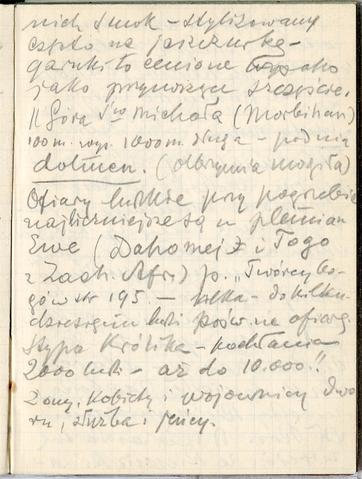 nich smok – stylizowany
często na jaszczurkę –
garnki to cenione
jako przynoszące szczęście.
|| Góra Św Michała (Morbihan)
100 m. 1000 m. długa – pod nią
dolmen. (olbrzymia mogiła)
Ofiary ludzkie przy pogrzebie
najliczniejsze są u plemion
Ewe (Dahomej i Togo
z Zach. Afr.) p. „Twórcy bo-
gów str 195. – kilka – do kilku-
dziesięciu ludzi pośw. na ofiarę
Stypa Królika –
2000 ludzi – aż do 10.000!!
Żony, kobiety i wojownicy dwo
ru, służba i jeńcy.